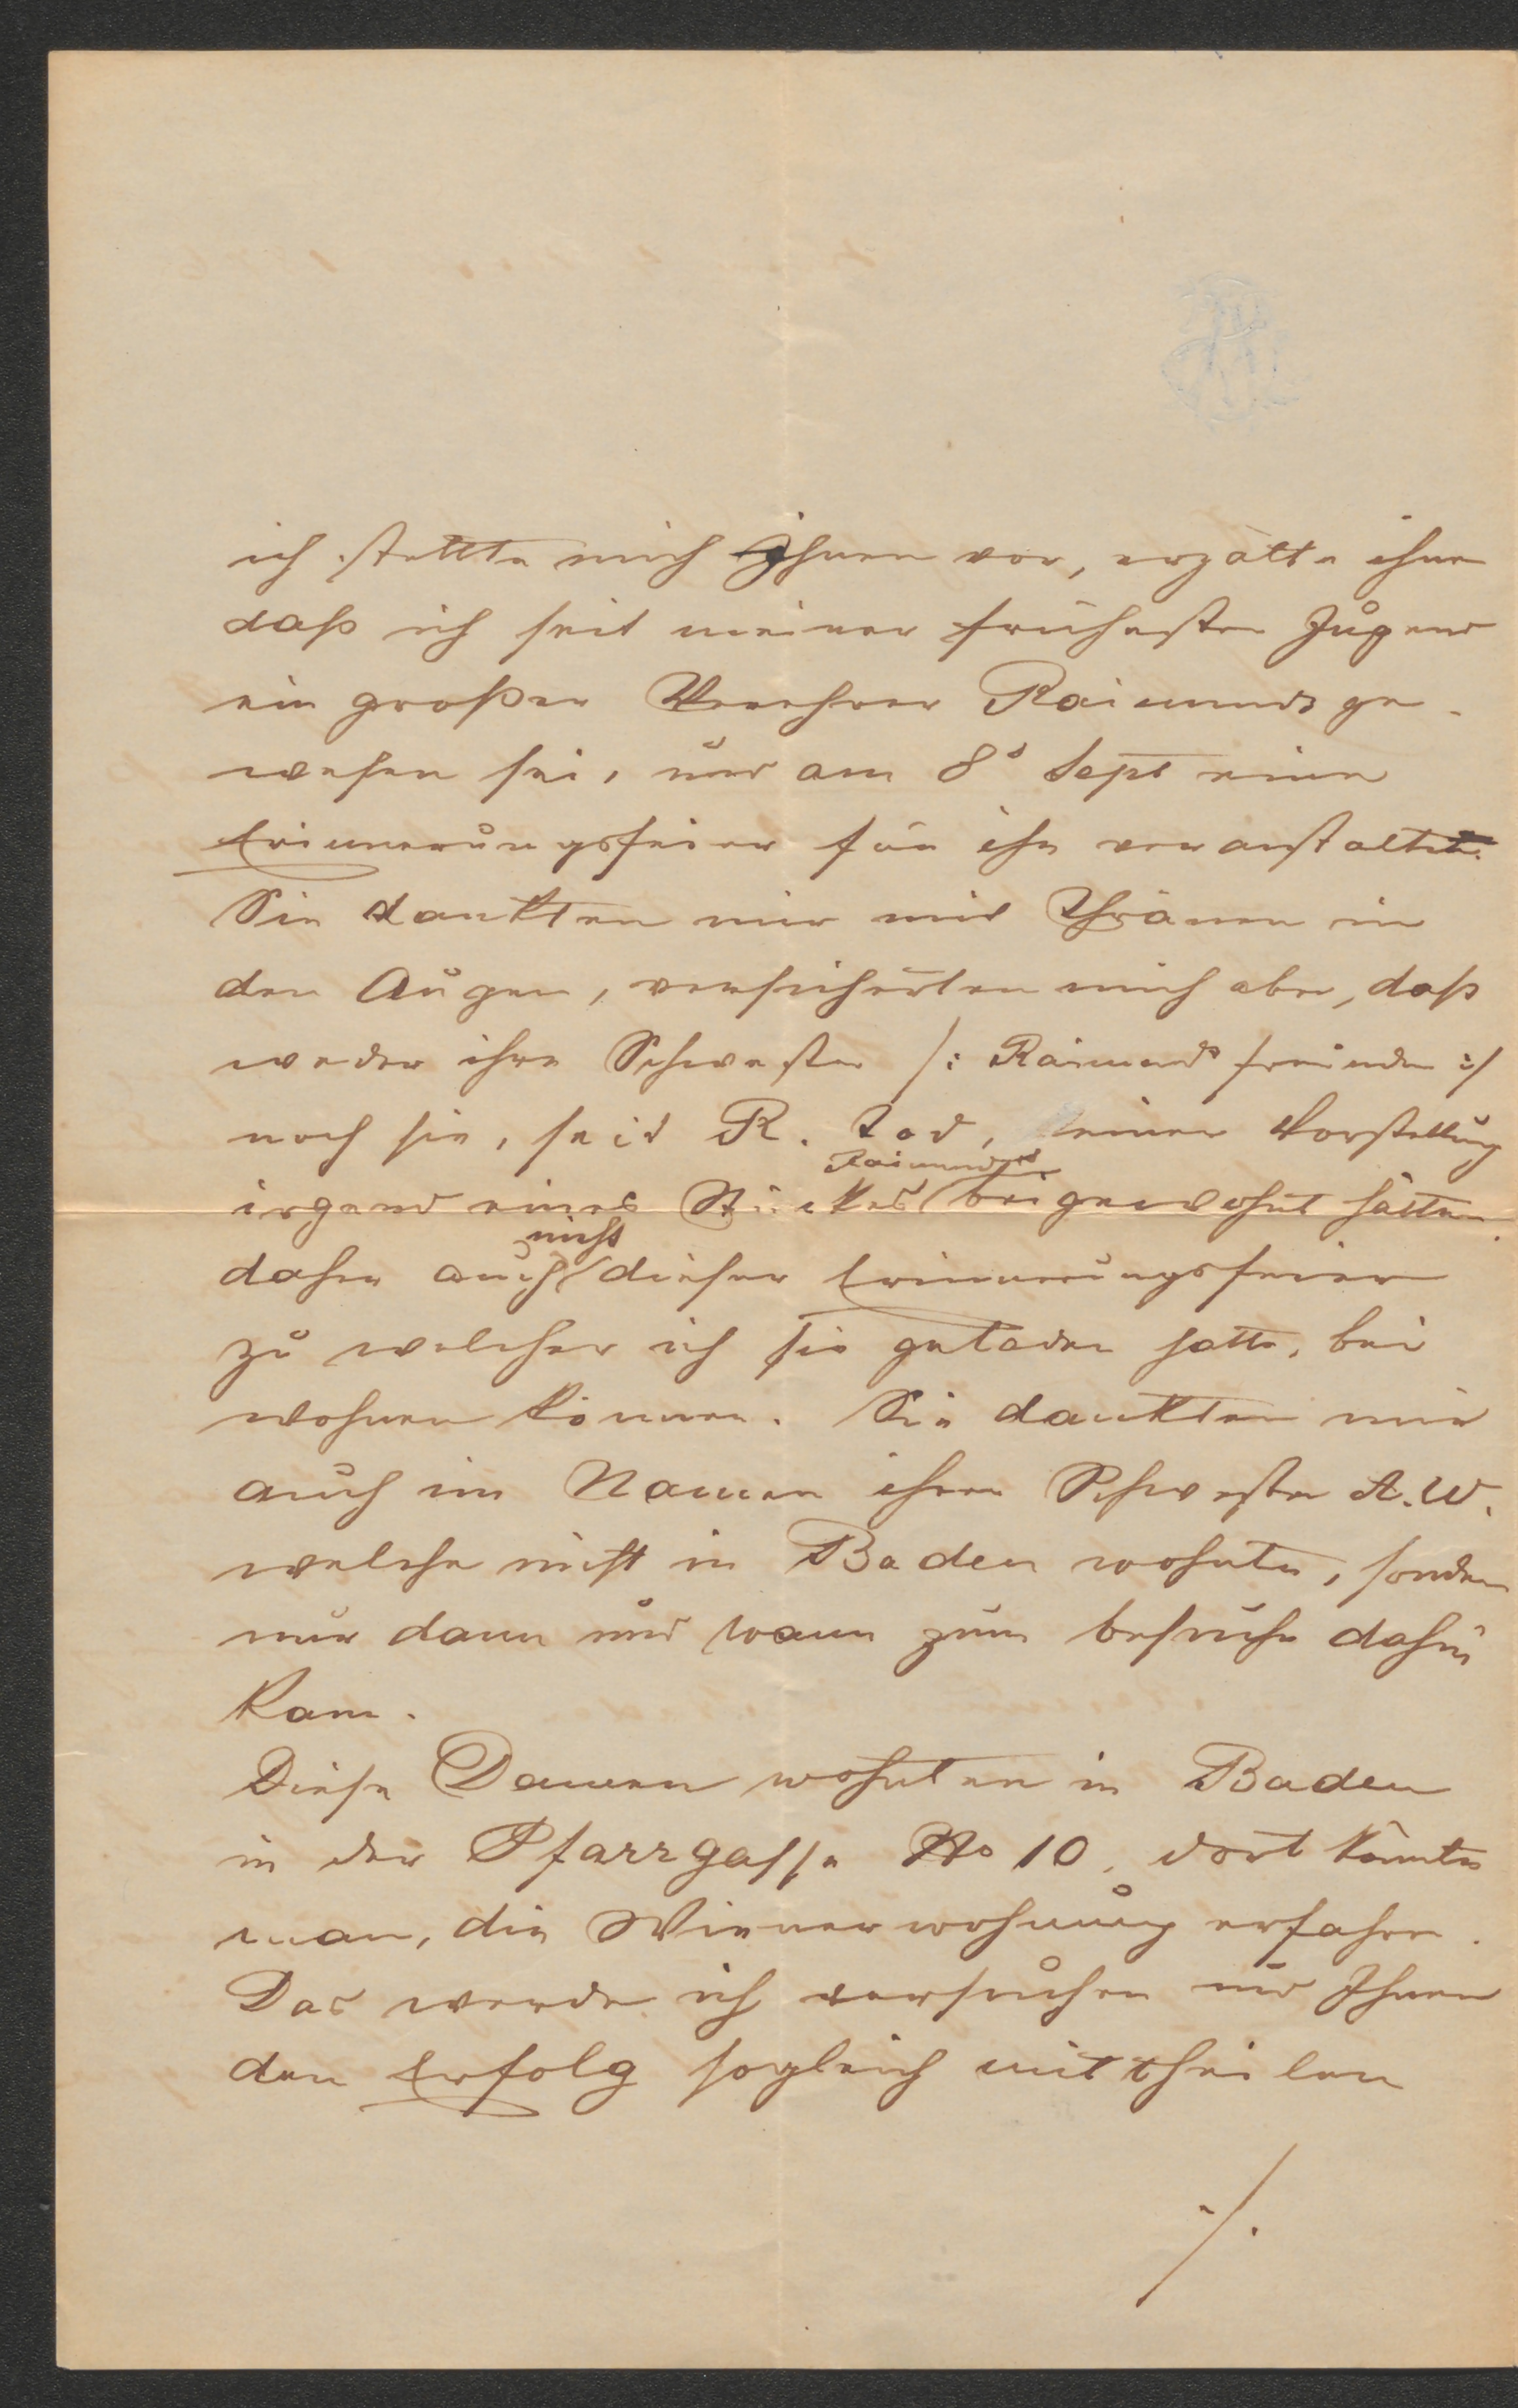 ich stellte mich Ihnen vor, erzälte ihne
daß ich seit meiner frühesten Jugend
ein großer Verehrer Raimunds ge-
wesen sei, und am 8t Sept eine
Erinnerungsfeier für ihn veranstaltet.
Sie dankten mir mit Thränen in
den Augen, versicherten mich aber, daß
weder ihre Schwester /: Raimunds Freundin :/
noch sie, seit R. Tod, einer Vorstellung
irgend eines Raimunds Stückes beigewohnt hätten,
daher auch nicht dieser Erinnerungsfeier
zu welcher ich sie geladen hatte, bei
wohnen können. Sie dankten mir
auch im Namen ihrer Schwester A. W.
welche nicht in Baden wohnte, sondern
nur dann und wann zum besuche dahin
kam.
Diese Damen wohnten in Baden
in der Pfarrgasse No 10, dort könnte
man, die Wienerwohnung erfahren.
Das werde ich versuchen und Ihnen
den Erfolg sogleich mittheilen
./.